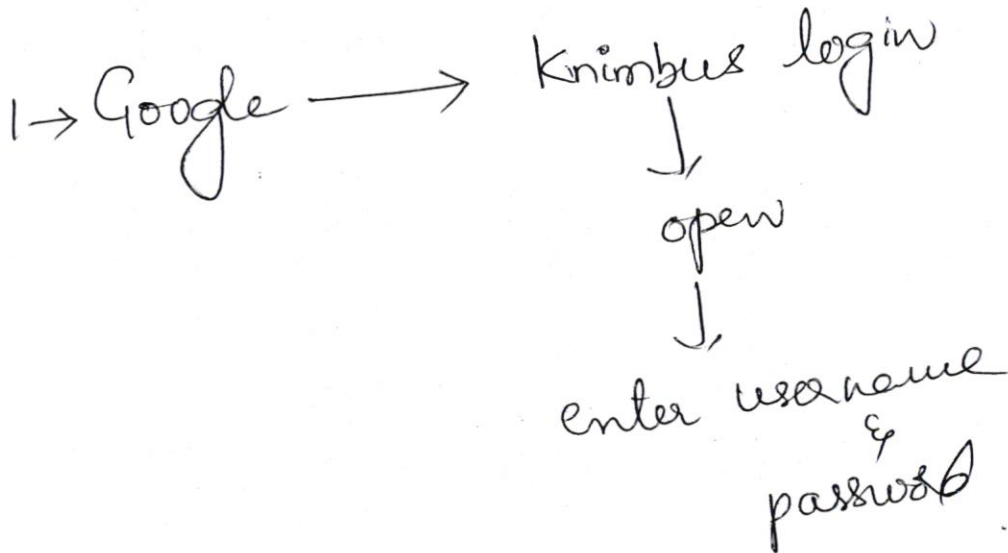 1→ Google → Knimbus login
↓
open
↓
enter username
&
password